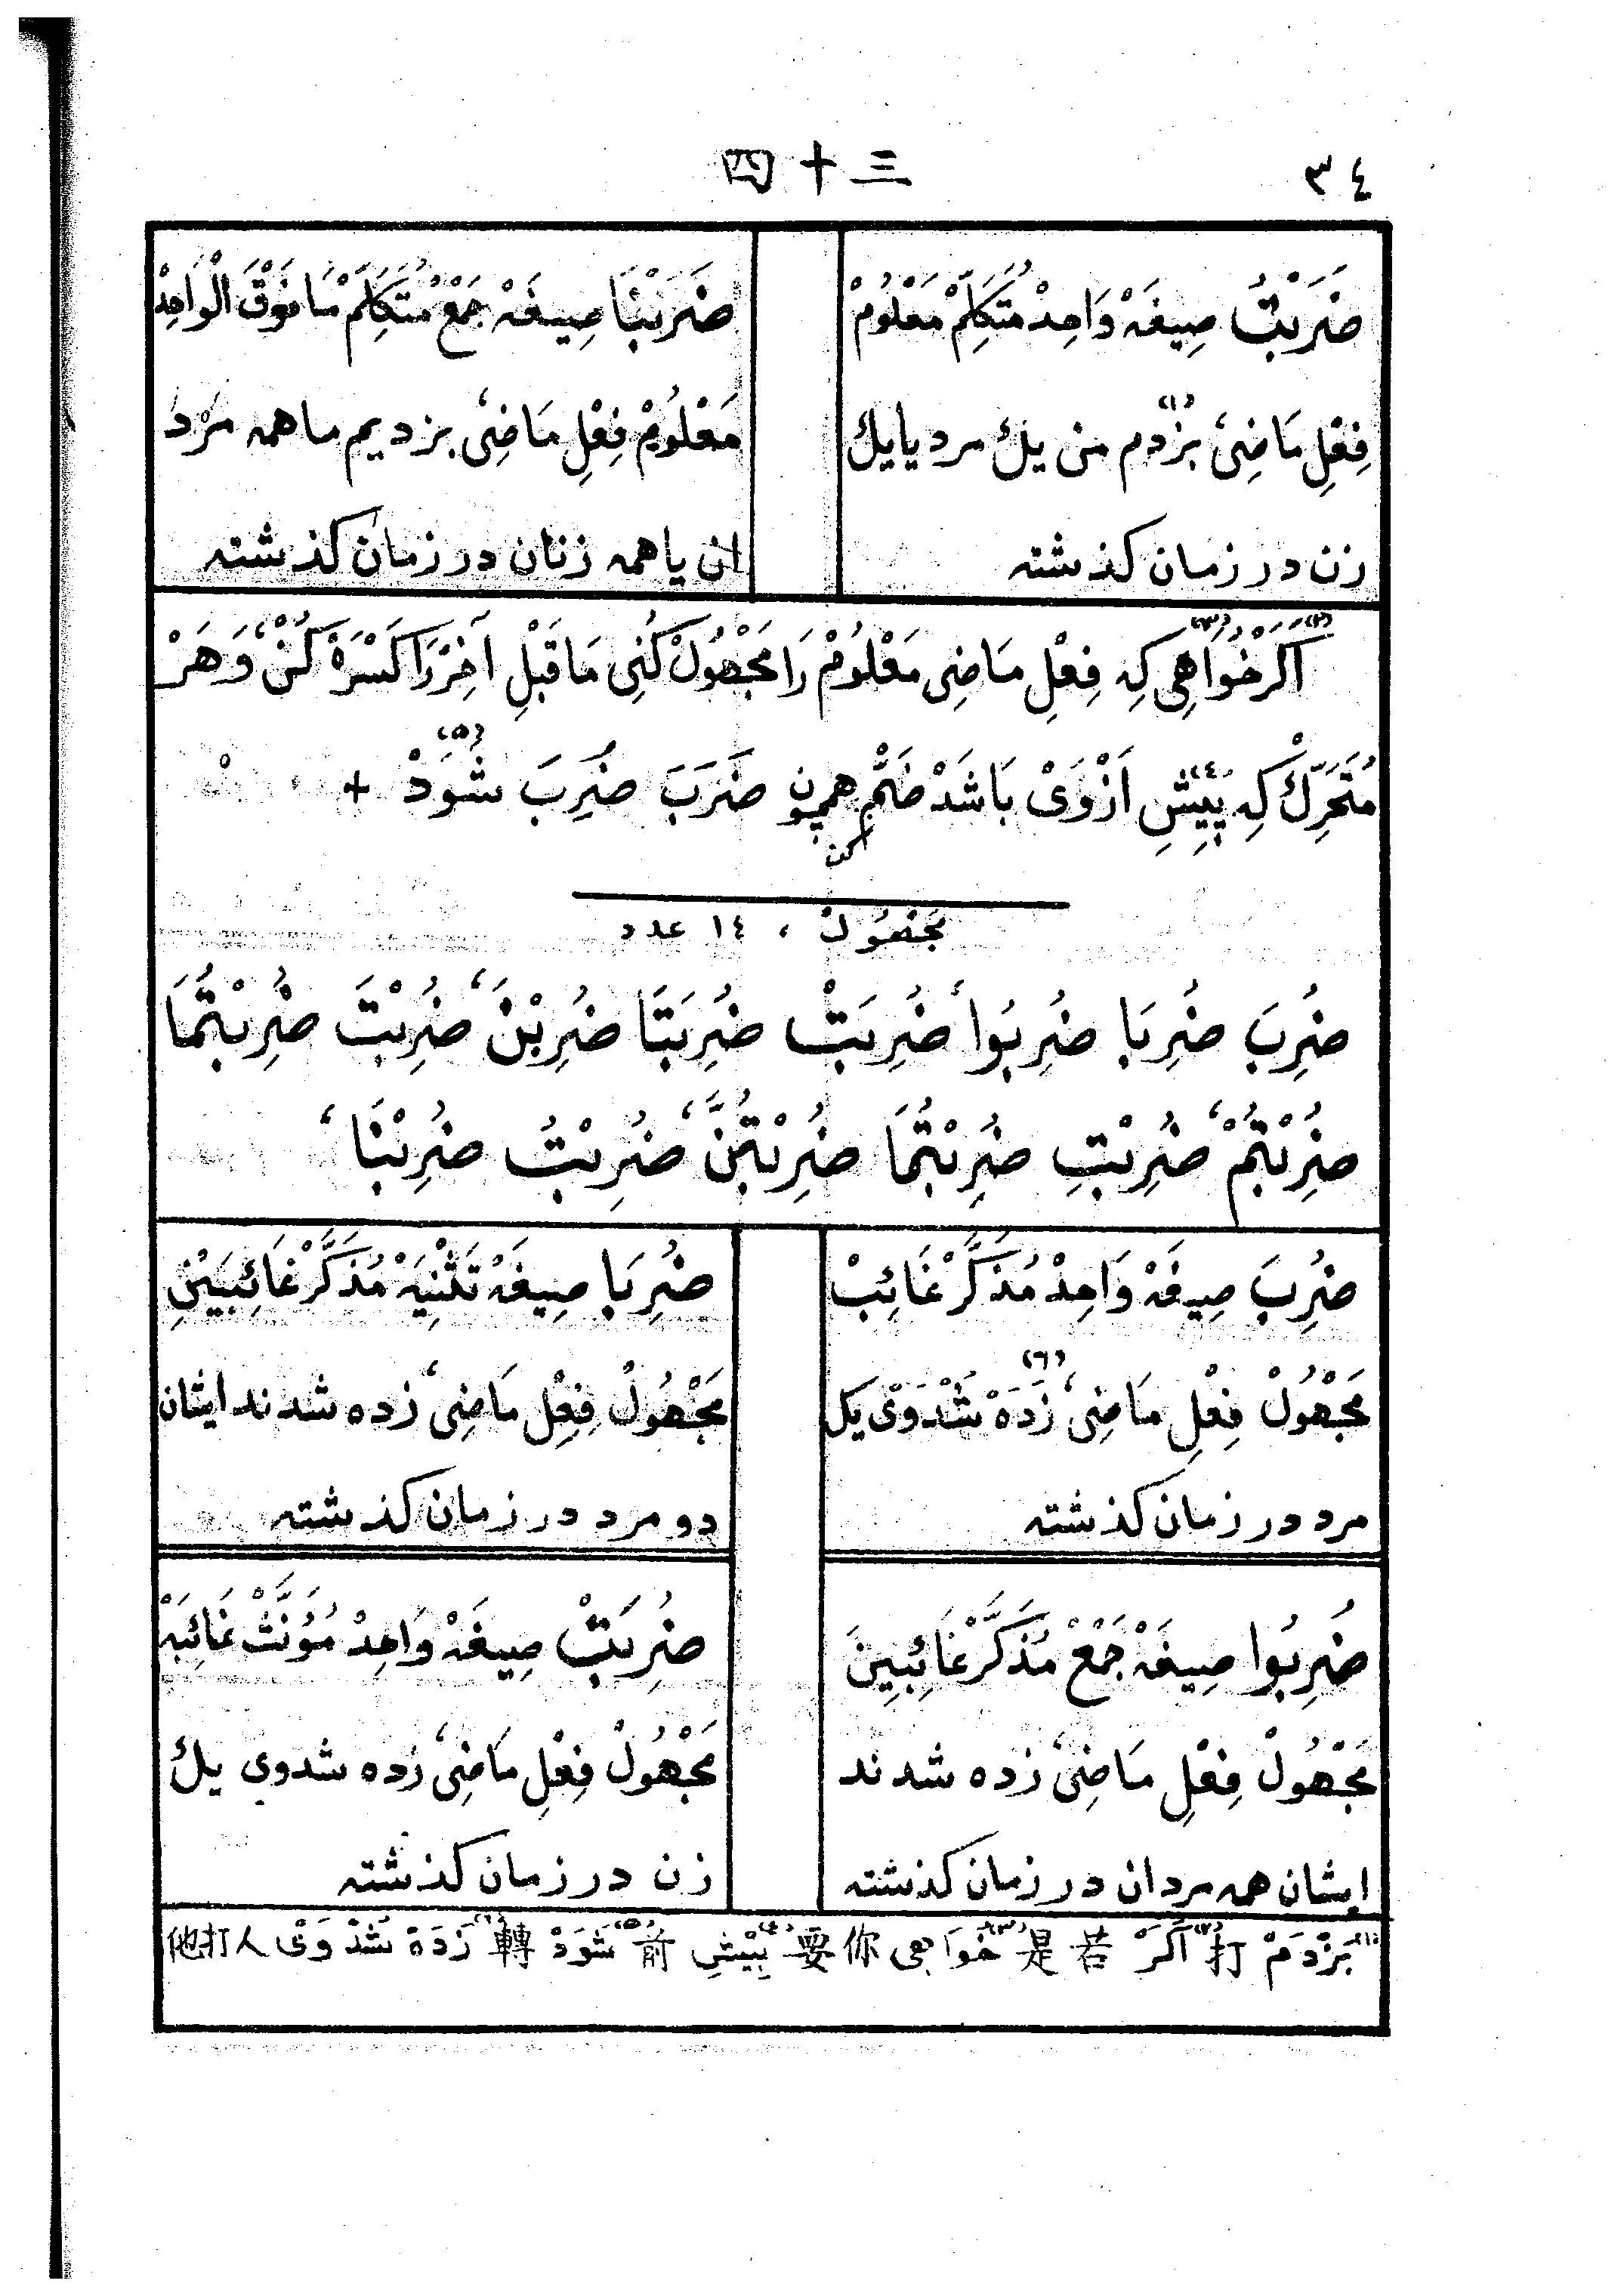 ٣٤
四十三
ضَرَبْتُ صِيغَهْ وَاحِدْ مُتَكَلِّمْ مَعْلُومْ
فِعْلِ مَاضِىْ، بَزَدَم (١) من يك مرد يا يك
زن در زمان كذشته
ضَرَبْنَا صِيغَهْ جَمْعْ مُتَكَلِّمْ مَا فَوْقَ الْوَاحِدْ
مَعْلُومْ فِعْلِ مَاضِىْ، بزديم ما همه مرد
ان يا همه زنان در زمان كذشته
اَكَرْ (٢) خُوَاهِى (٣) كِه فِعْلِ مَاضِى مَعْلُومْ رَا مَجْهُولْ كُنِى مَا قَبْلِ آخِرْ رَا كَسْرَهْ كُنْ، وَهَرْ
مُتَحَرِّكْ كِه پِيشِ (٤) اَزْوَىْ بَاشَدْ ضَمّ همچون ضَرَبَ ضُرِبَ شَوَدْ (٥) +
كن
مجهول ، ١٤ عدد
ضُرِبَ ضُرِبَا ضُرِبُوا، ضُرِبَتْ ضُرِبَتَا ضُرِبْنَ، ضُرِبْتَ ضُرِبْتُمَا
ضُرِبْتُمْ، ضُرِبْتِ ضُرِبْتُمَا ضُرِبْتُنَّ، ضُرِبْتُ ضُرِبْنَا،
ضُرِبَ صِيغَهْ وَاحِدْ مُذَكَّرْ غَائِبْ
مَجْهُولْ فِعْلِ مَاضِىْ، زَدَهْ شُدْ وَىْ (٦) يك
مرد در زمان كذشته
ضُرِبَا صِيغَهْ تَثْنِيَهْ مُذَكَّرْ غَائِبَيْنِ
مَجْهُولْ فِعْلِ مَاضِىْ، زده شدند ايشان
دو مرد در زمان كذشته
ضُرِبُوا صِيغَهْ جَمْعْ مُذَكَّرْ غَائِبِينَ
مَجْهُولْ فِعْلِ مَاضِىْ، زده شدند
ايشان همه مردان در زمان كذشته
ضُرِبَتْ صِيغَهْ وَاحِدْ مُؤَنَّثْ غَائِبَهْ
مَجْهُولْ فِعْلِ مَاضِىْ، زده شد وي يك
زن در زمان كذشته
(١) بَزَدَمْ 打 (٢) اَكَرْ 若是 (٣) خُوَاهِى 你要 (٤) پِيشِ 前 (٥) شَوَدْ 轉 (٦) زَدَهْ شُدْ وَىْ 他打人